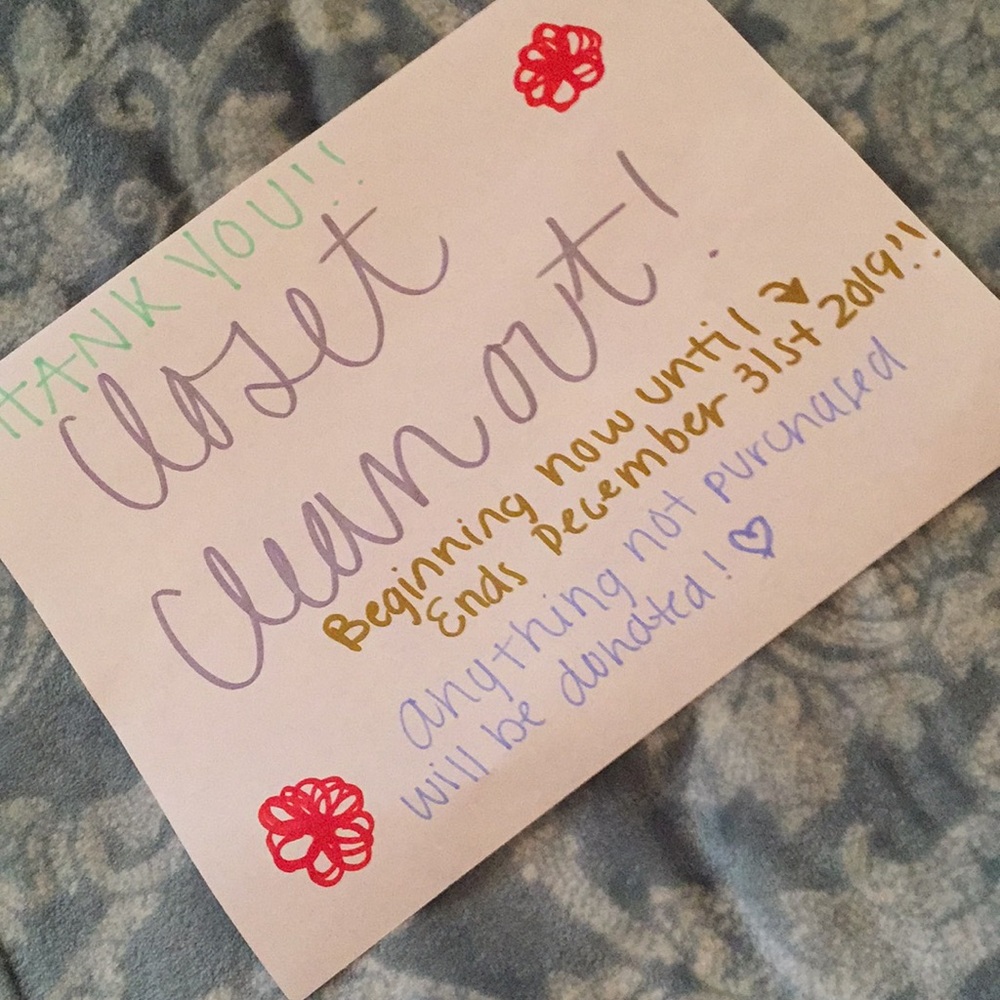 HANK YOU!!
Closet
Clean out!
Beginning now until
Ends December 31st 2019!!
anything not purchased
will be donated!